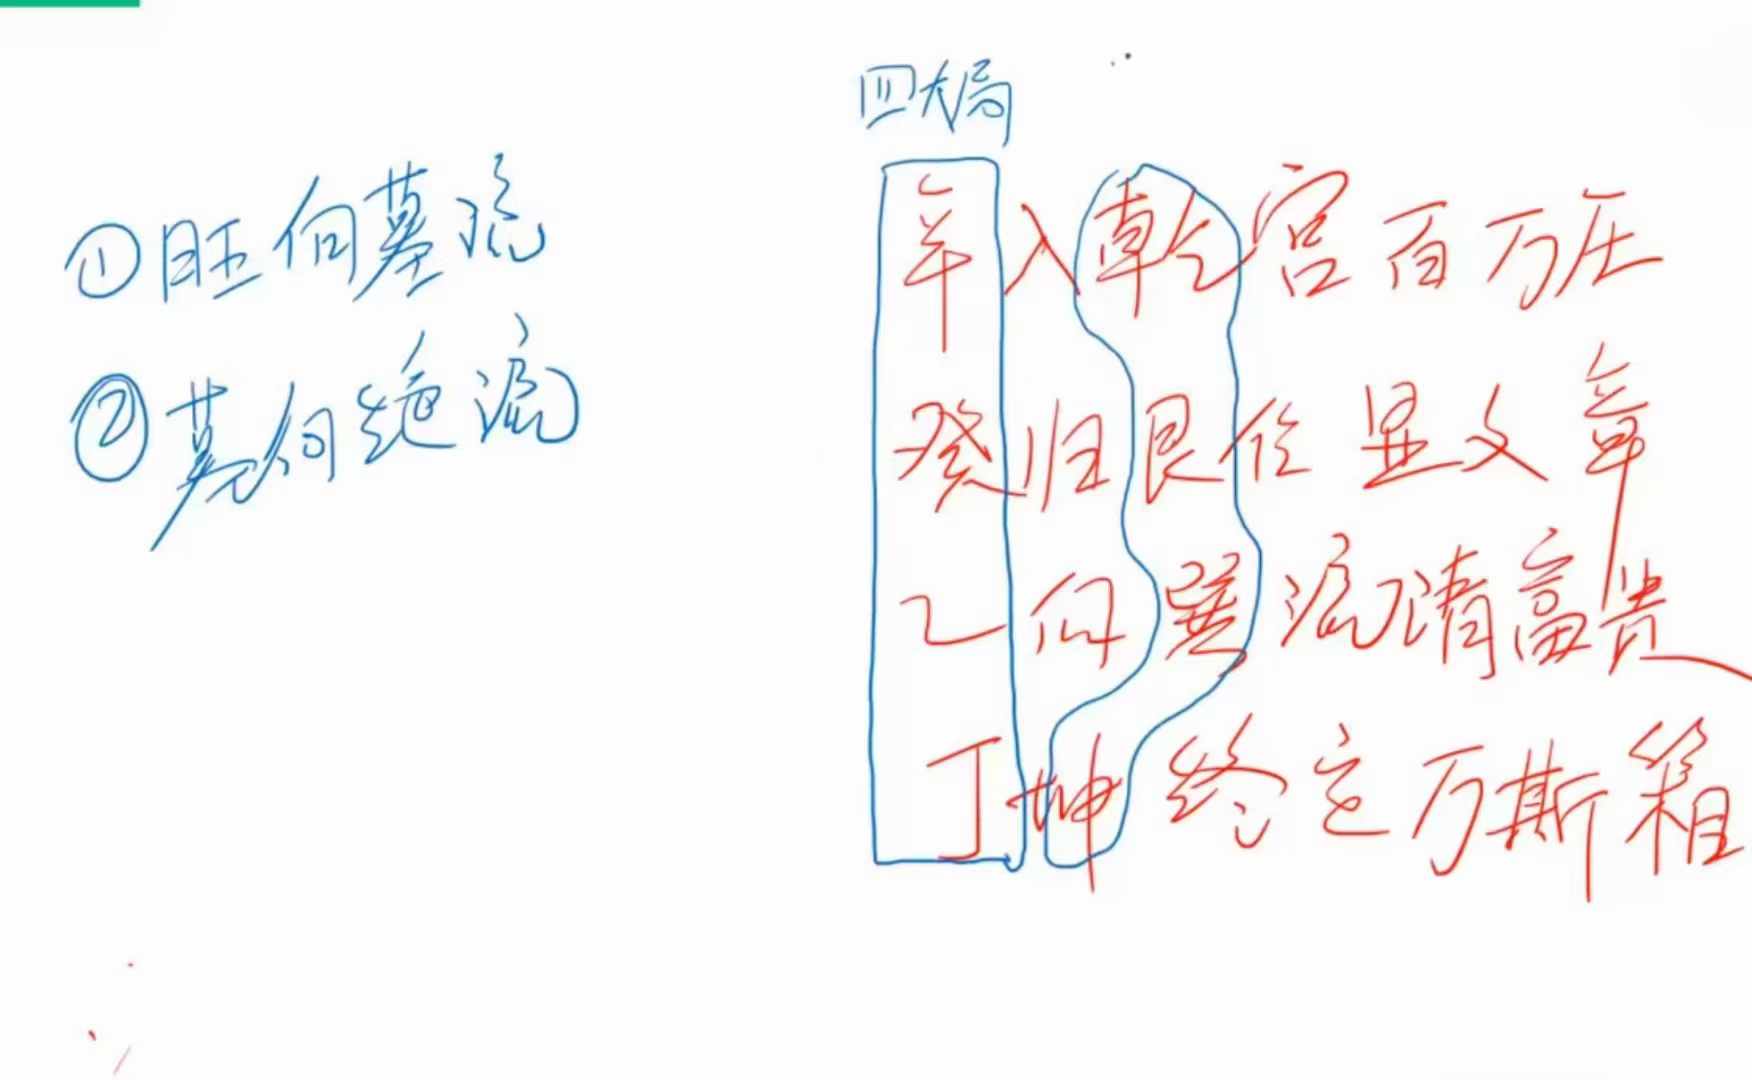 四大局
①旺向墓流
②墓向绝流
辛入乾宫百万庄
癸归艮位显文章
乙向巽流清富贵
丁坤终是万斯箱